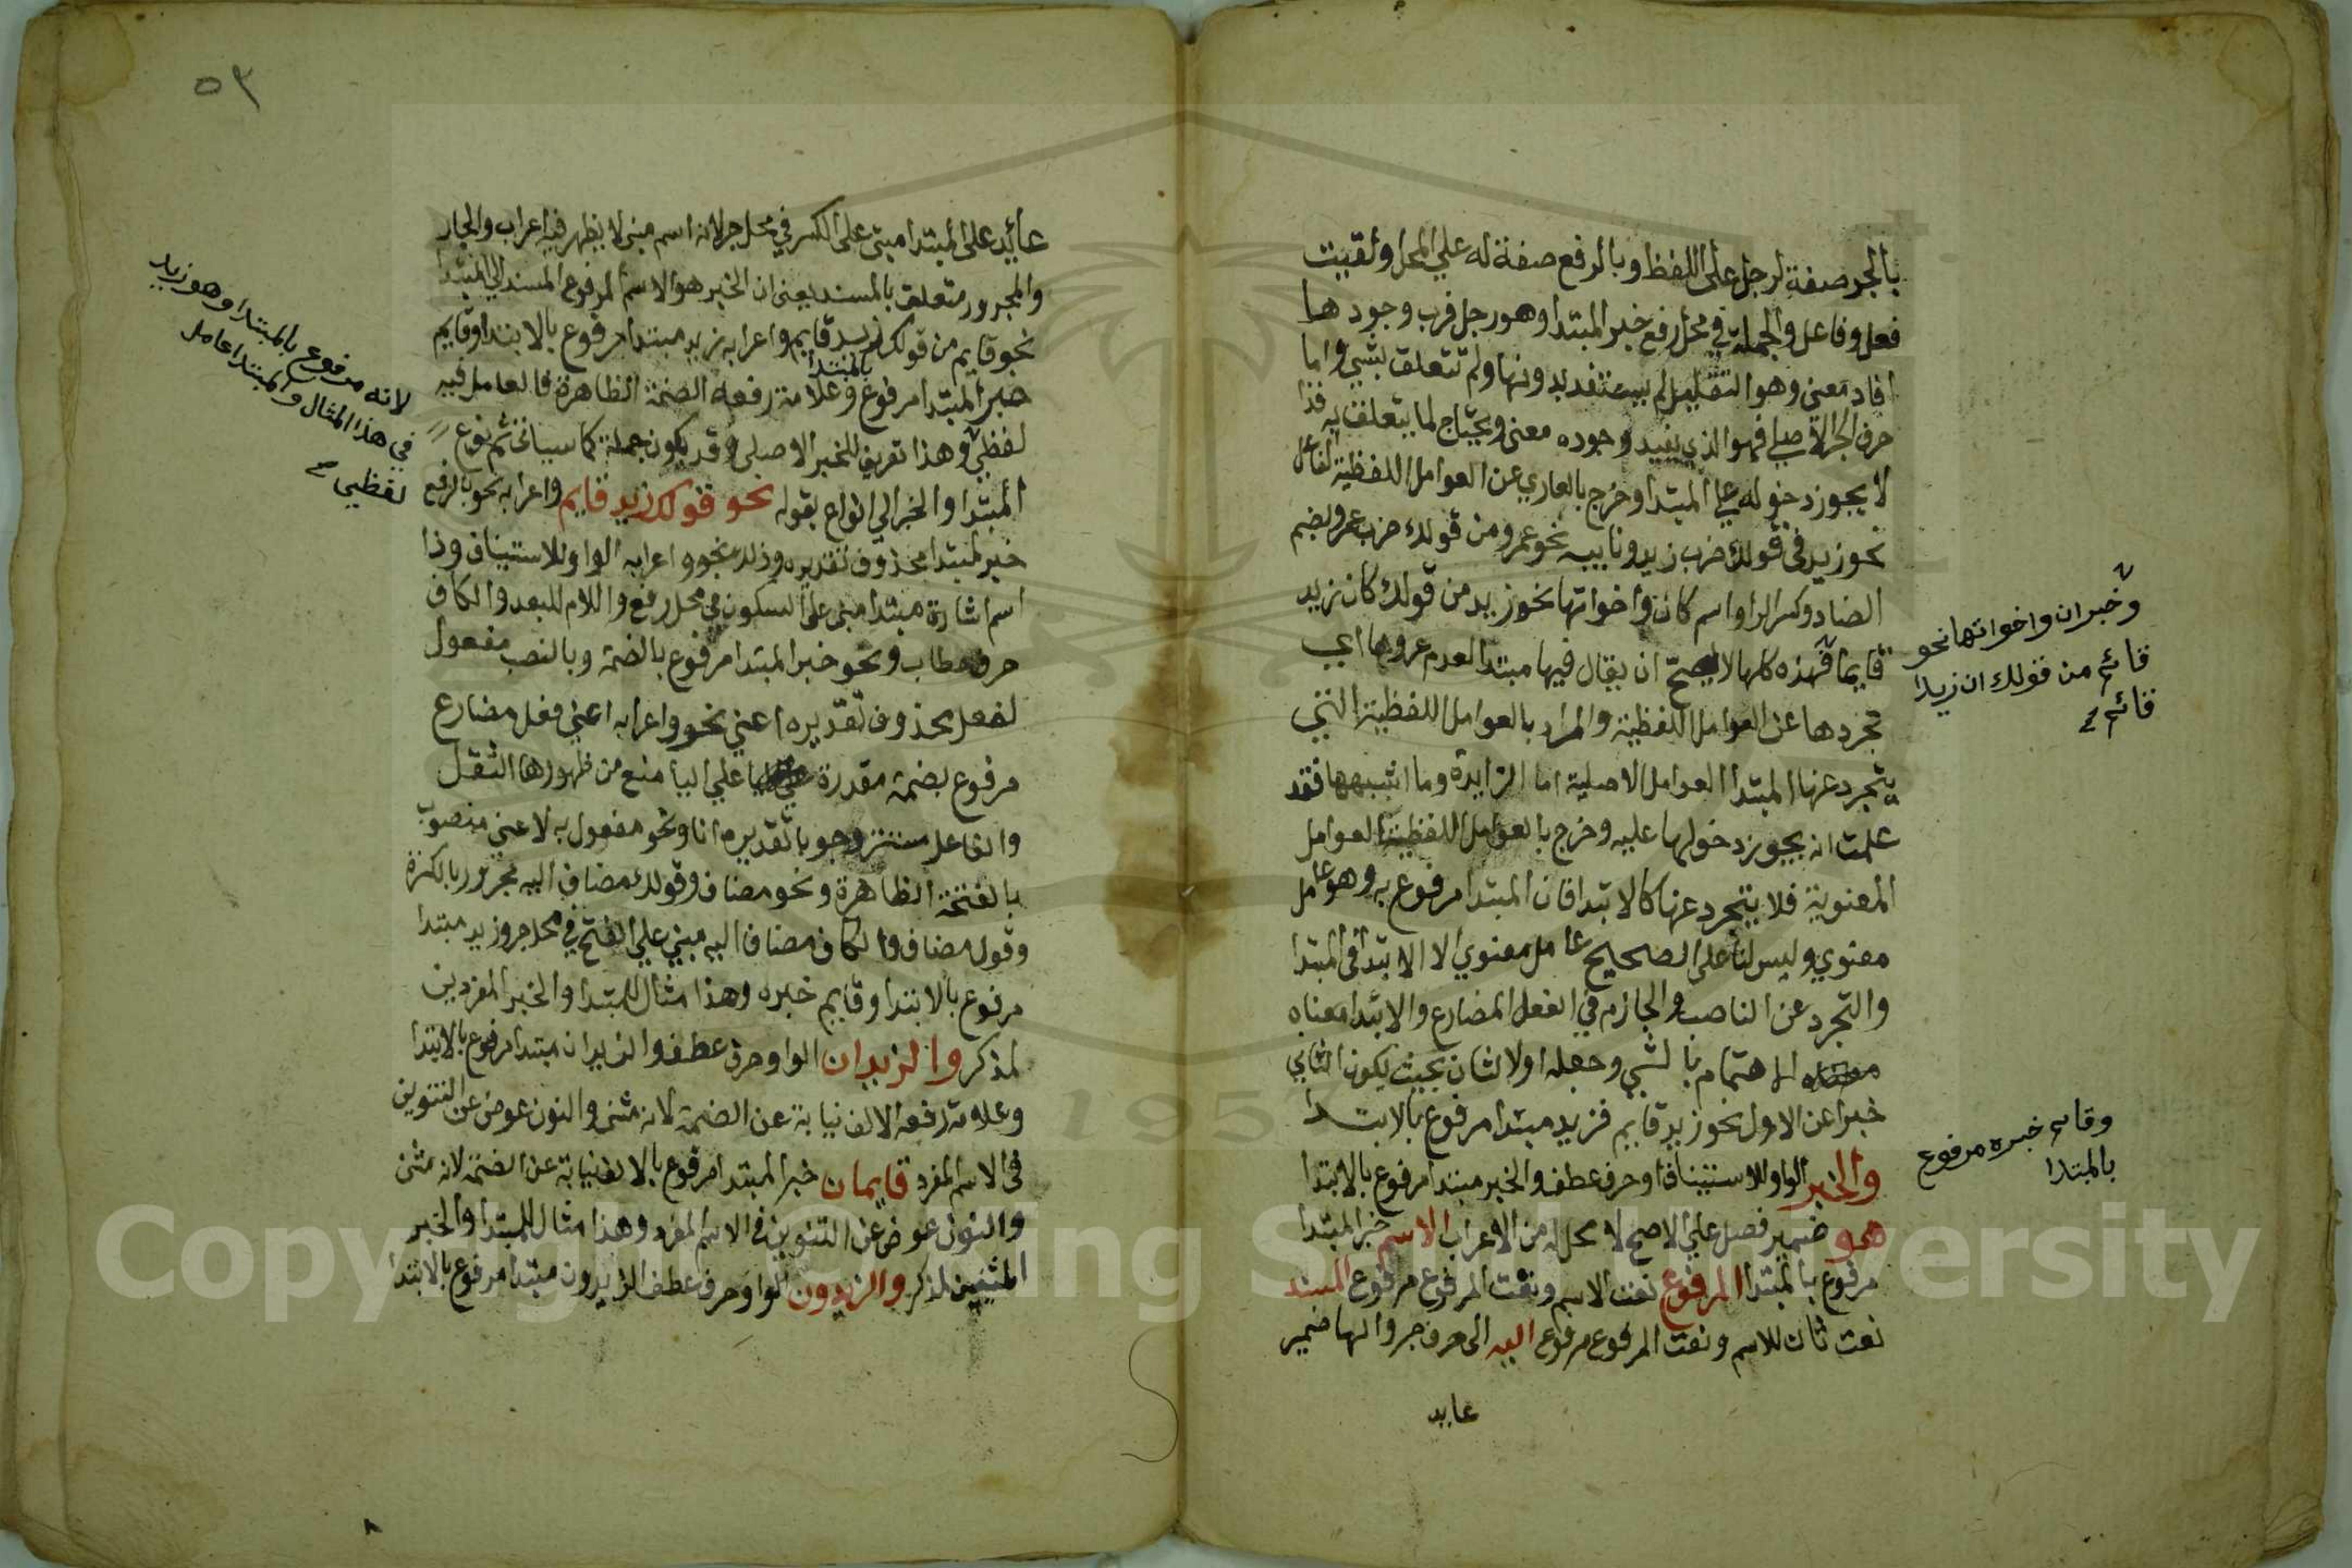 بالجر صفة لرجل علي اللفظ وبالرفع صفة له علي المحل ولقيت
فعل وفاعل والجملة في محل رفع خبر المبتدا وهو رجل فرب وجودها
افاد معني وهو التقليل لم يستفد بدونها ولم تتعلق بشي واما
حرف الجر الاصلي فهو الذي يفيد وجوده معني ويحتاج لما يتعلق به فذا
لا يجوز دخوله علي المبتدا وخرج بالعاري عن العوامل اللفظية الفاعل
نحو زيد في قولك ضرب زيد ونايبه نحو عمرو من قولك ضرب عمرو بضم
الضاد وكسر الرا واسم كان واخواتها نحو زيد من قولك كان زيد
قايما فهذه كلها لا يصح ان يقال فيها مبتدا لعدم عروها اي
وخبر ان واخواتها نحو
قائم من قولك ان زيدا
قائم
تجردها عن العوامل اللفظية والمراد بالعوامل اللفظية التي
يتجرد عنها المبتدا العوامل الاصلية اما الزايدة وما اشبهها فقد
علمت انه يجوز دخولها عليه وخرج بالعوامل اللفظية العوامل
المعنوية فلا يتجرد عنها كالابتدا فان المبتدا مرفوع به وهو عامل
معنوي وليس لنا علي الصحيح عامل معنوي الا الابتدا في المبتدا
والتجرد عن الناصب والجازم في الفعل المضارع والابتدا معناه
الاهتمام بالشي وجعله اولا لثان بحيث يكون الثاني
خبرا عن الاول نحو زيد قايم فزيد مبتدا مرفوع بالابتدا
وقائم خبره مرفوع
بالمبتدا
والخبر الواو للاستيناف او حرف عطف والخبر مبتدا مرفوع بالابتدا
هو ضمير فصل علي الاصح لا محل له من الاعراب الاسم خبر المبتدا
مرفوع بالمبتدا المرفوع نعت الاسم ونعت المرفوع مرفوع المسند
نعت ثان للاسم ونعت المرفوع مرفوع اليه الى حرف جر والها ضمير
عايد
٥٣
عايد على المبتدا مبني على الكسر في محل جر لانه اسم مبني لا يظهر فيه اعراب والجار
والمجرور متعلق بالمسند يعني ان الخبر هو الاسم المرفوع المسند الي المبتدا
نحو قايم من قولك زيد قايم واعرابه زيد مبتدا مرفوع بالابتدا وقايم
خبر المبتدا مرفوع بالمبتدا وعلامة رفعه الضمة الظاهرة فالعامل فيه
لانه مرفوع بالمبتدا وهو زيد
في هذا المثال والمبتدا عامل
لفظي
لفظي وهذا تعريف للخبر الاصلي وقد يكون جملة كما سياتي ثم نوع
المبتدا والخبر الي انواع بقوله نحو قولك زيد قايم واعرابه نحو بالرفع
خبر لمبتدا محذوف تقديره وذلك نحو واعرابه الواو للاستيناف وذا
اسم اشارة مبتدا مبني على السكون في محل رفع واللام للبعد والكاف
حرف خطاب ونحو خبر المبتدا مرفوع بالضمة وبالنصب مفعول
لفعل محذوف تقديره اعني نحو واعرابه اعني فعل مضارع
مرفوع بضمة مقدرة علي اليا منع من ظهورها الثقل
والفاعل مستتر وجوبا تقديره انا ونحو مفعول به لاعني منصوب
بالفتحة الظاهرة ونحو مضاف وقولك مضاف اليه مجرور بالكسرة
وقول مضاف والكاف مضاف اليه مبني علي الفتح في محل جر وزيد مبتدا
مرفوع بالابتدا وقايم خبره وهذا مثال للمبتدا والخبر المفردين
لمذكر والزيدان الواو حرف عطف والزيدان مبتدا مرفوع بالابتدا
وعلامة رفعه الالف نيابة عن الضمة لانه مثنى والنون عوض عن التنوين
في الاسم المفرد قايمان خبر المبتدا مرفوع بالالف نيابة عن الضمة لانه مثنى
والنون عوض عن التنوين في الاسم المفرد وهذا مثال للمبتدا والخبر
المثنيين لمذكر والزيدون الواو حرف عطف الزيدون مبتدا مرفوع بالابتدا
٨
Copyright © King Saud University
1957